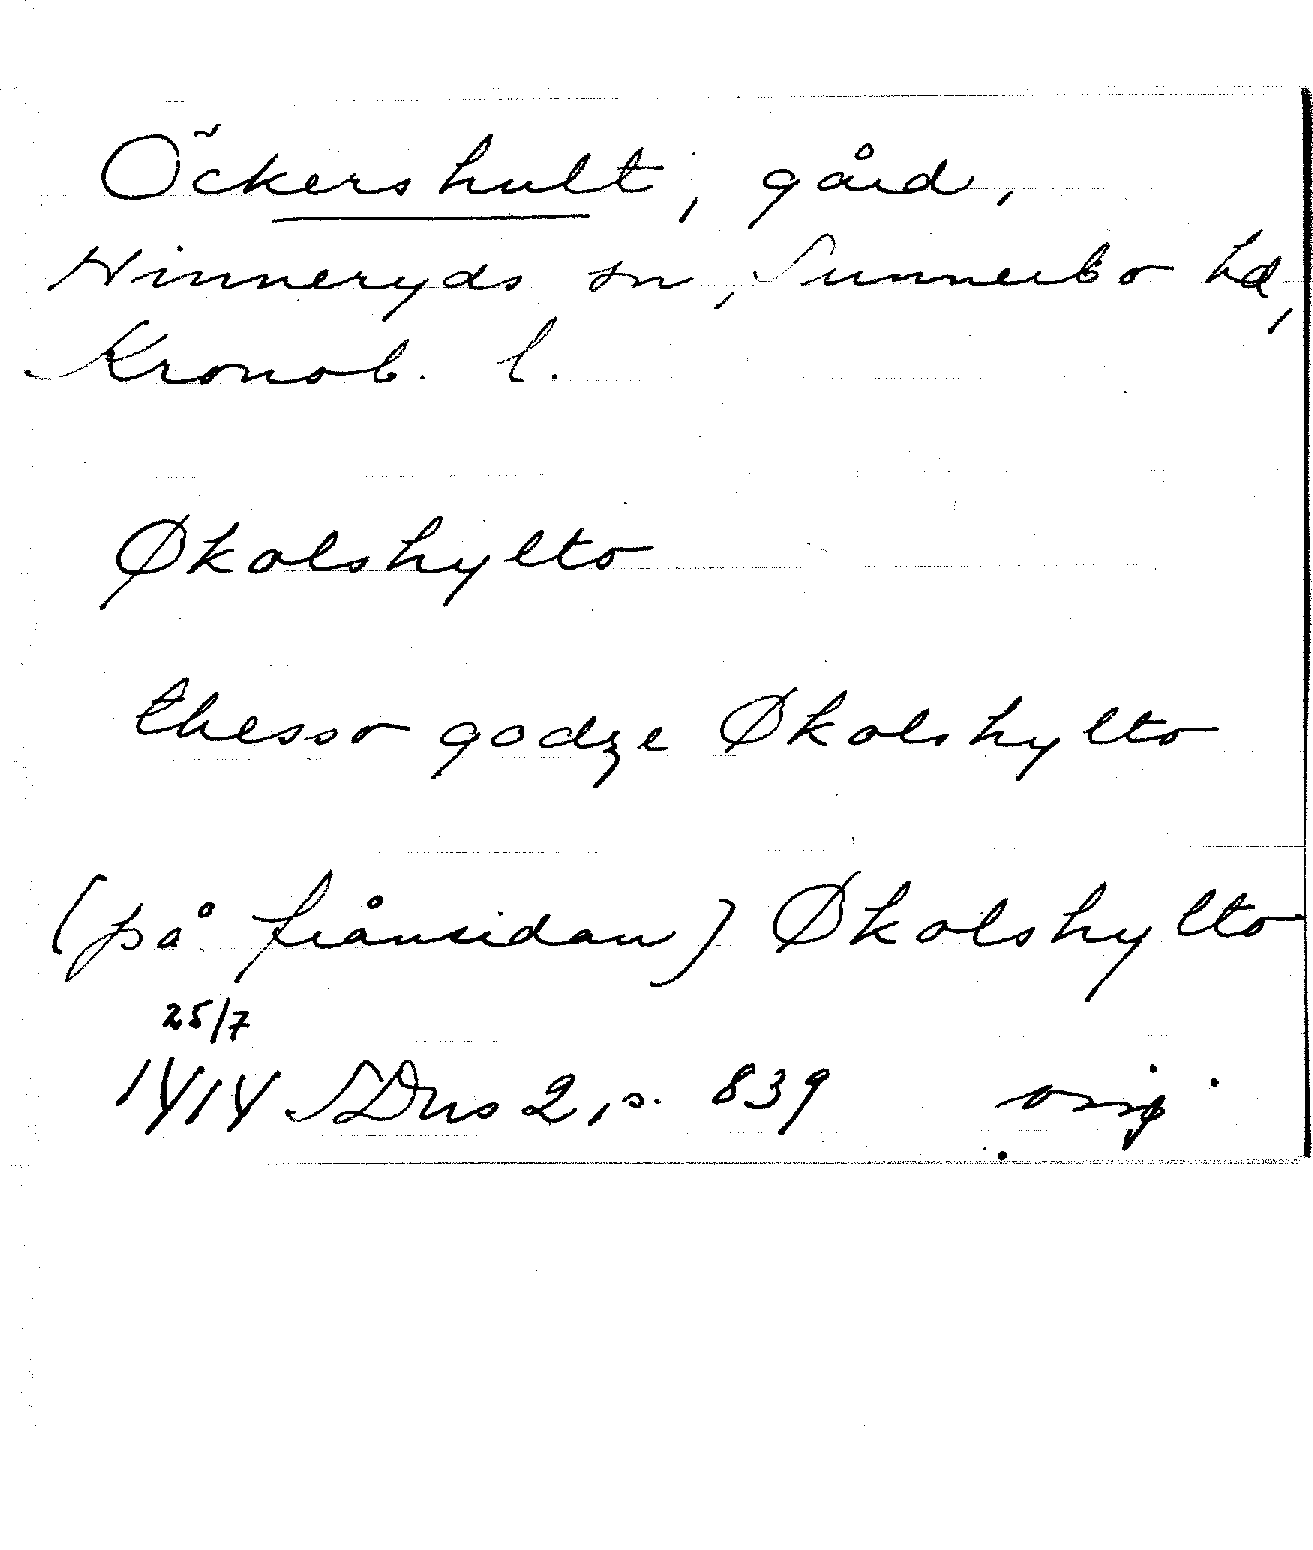 Öckershult, gård,
Hinneryds sn, Sunnerbo hd,
Kronob. l.
Økolshylto
thesso godze Økolshylto
(på frånsidan) Økolshylto
25/7
1414 SDns 2, s. 839 orig.